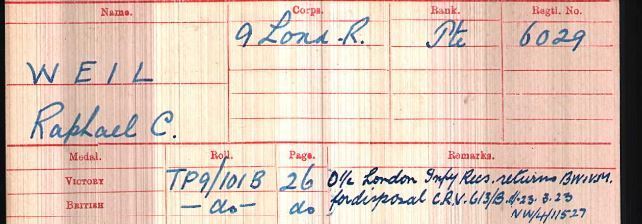 Name. Corps. Rank. Regtl. No.
9 Lond. R. Pte 6029
WEIL
Raphael C.
Medal. Roll. Page. Remarks.
VICTORY TP9/101B 26 O i/c London Infy Recs. returns BW.V.M.
BRITISH —do— do for disposal C.R.V. 613/B. 3.23
NW/4/11527